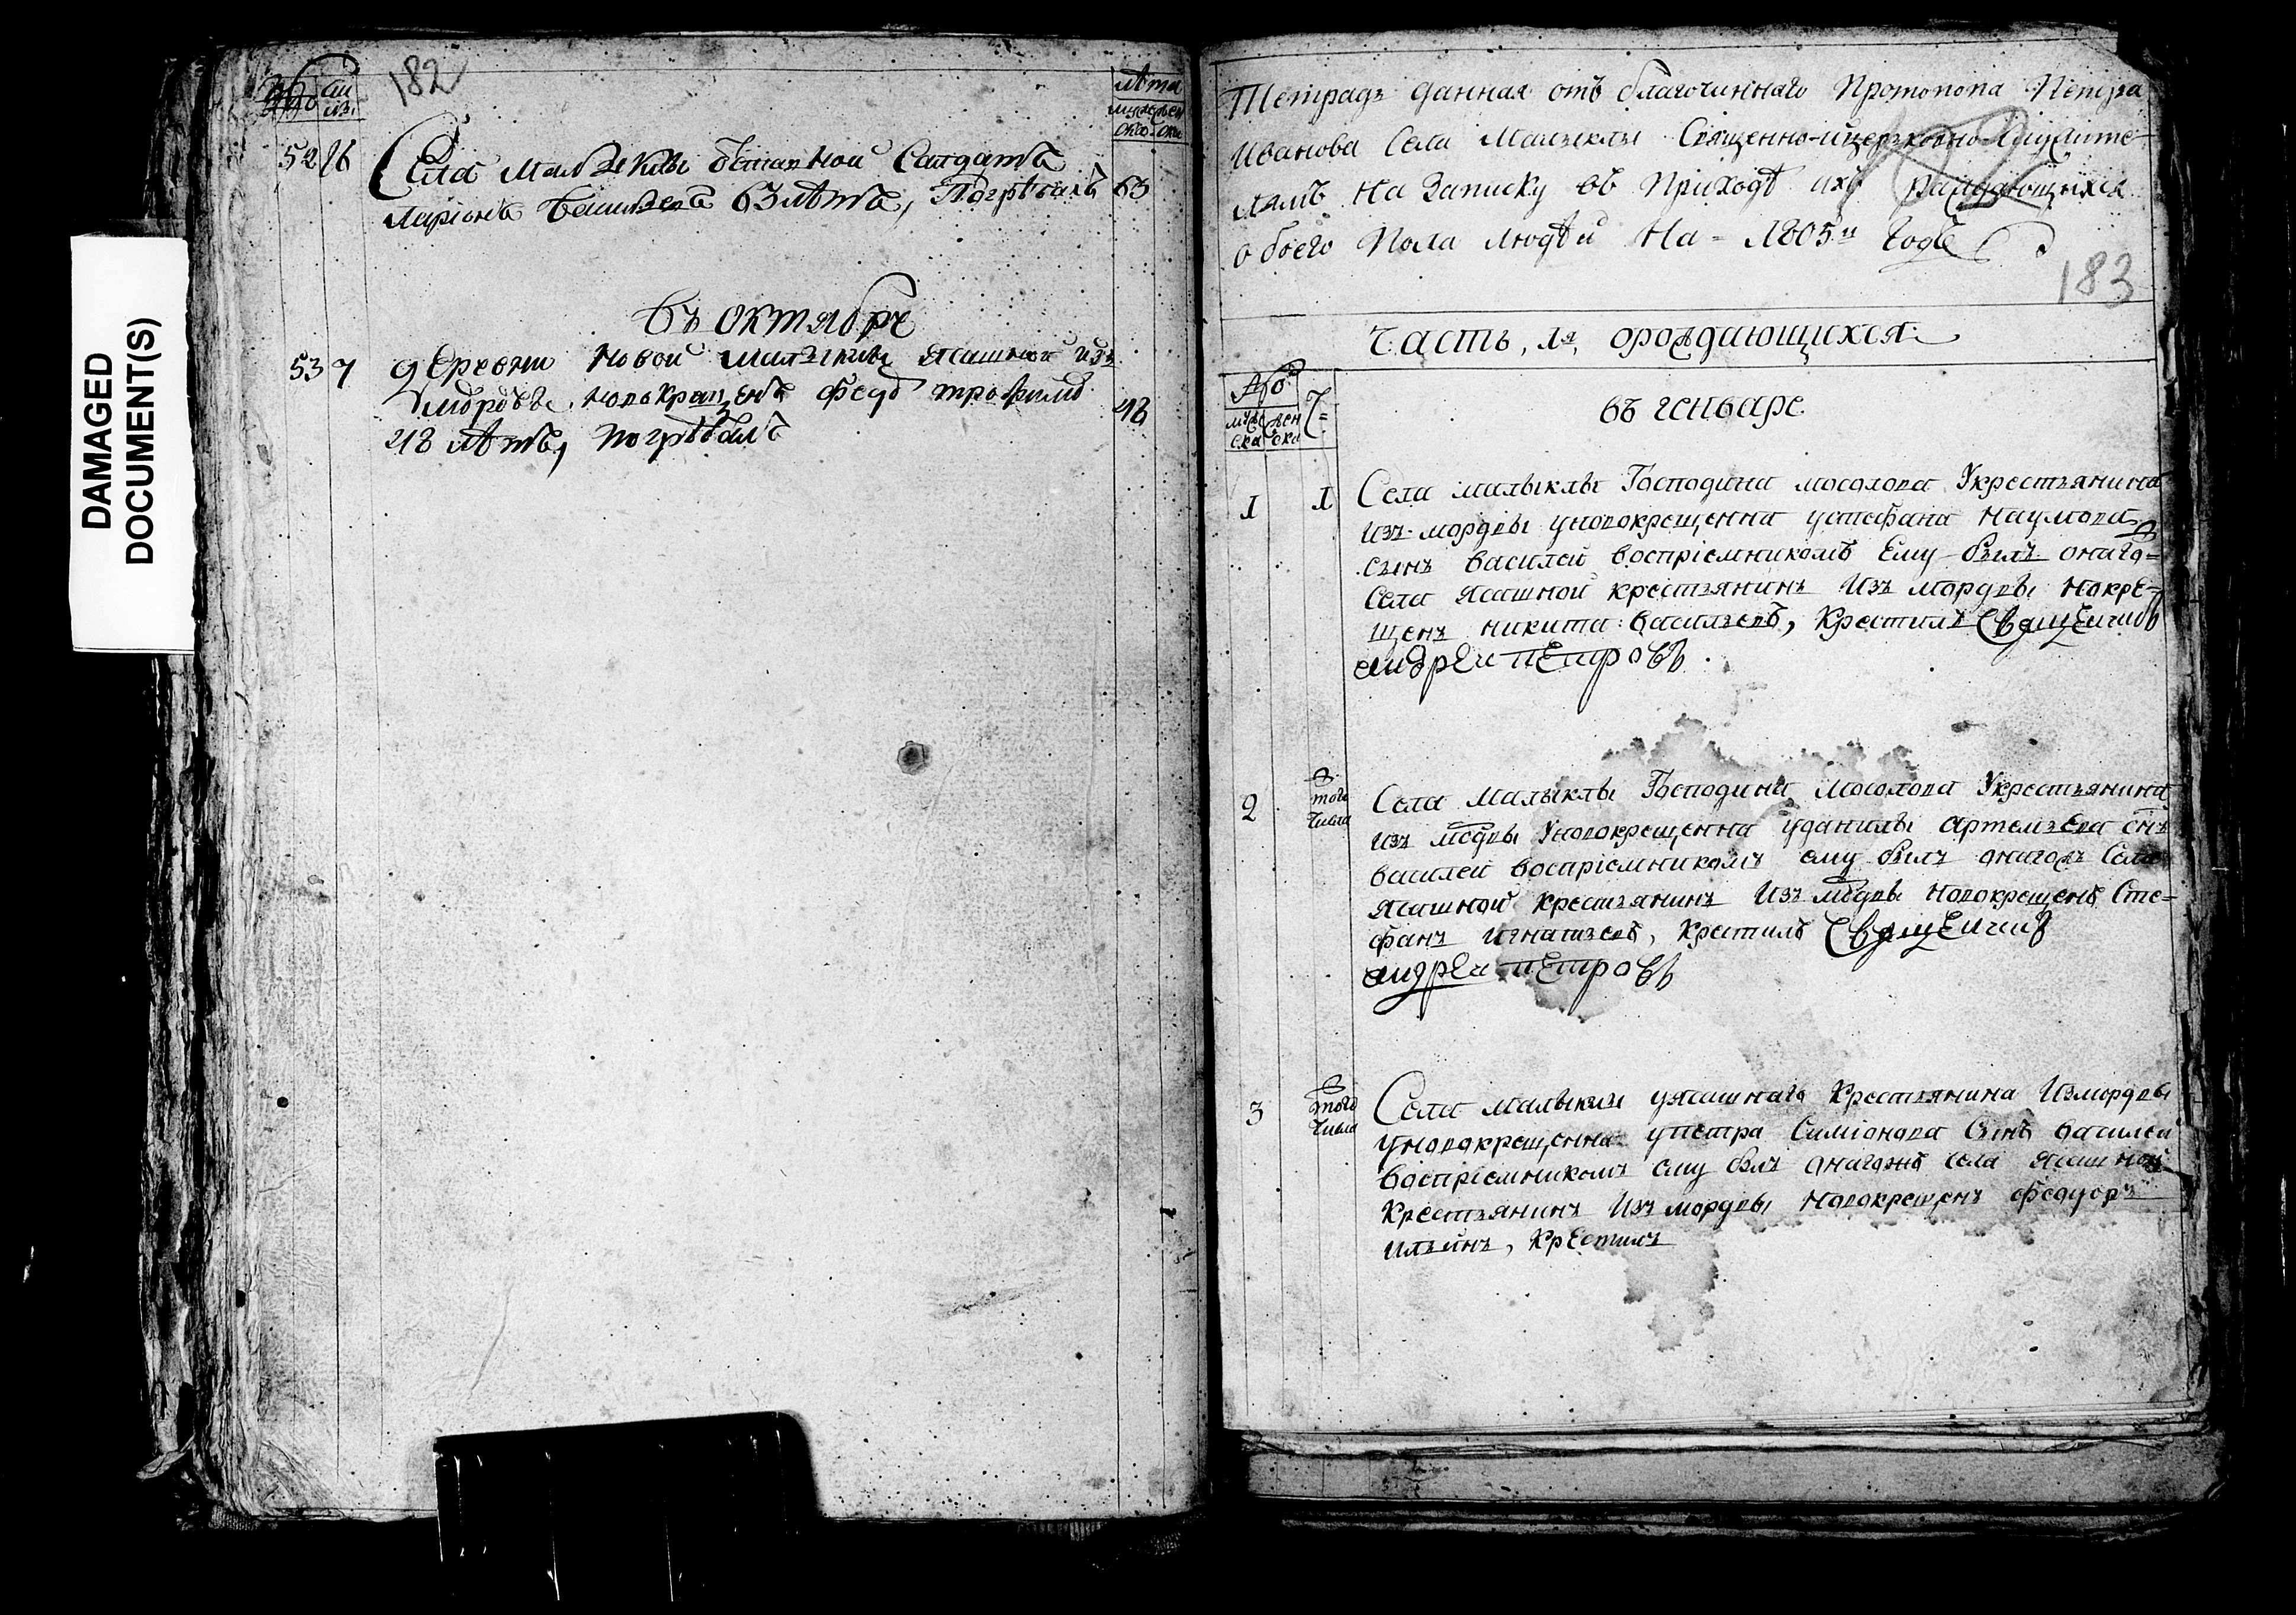 DAMAGED
DOCUMENT(S)
182
лѣта
52
Села Малыклы отставной Салдатъ
Ларiонъ Васильевъ 63 лѣтъ, Погрѣбалъ 63
Въ октябрѣ
53 7 деревни Новой малыклы ясашной изъ
мордвы новокрещенъ Федо трофимо
48 лѣтъ, погрѣбалъ 48
Тетрадь данная отъ благочиннаго Протопопа Петра
Иванова Села Малыклы Священно-ицерьковно-служите
лямъ на Записку въ Приходѣ ихъ раждающихся
обоего Пола людѣй На = 1805й Годъ
183
Часть, 1я, ораждающихся
муже ска
жен ска
въ генваре
1 1 Села малыклы Господина масолова Укрестьянина
изъ мордвы уновокрещенна устефана Наумова
сынъ василей воспрiемникомъ Ему былъ онаго=
Села ясашной крестьянинъ Изъ мордвы новокре=
щенъ никита васильевъ, Крестилъ Священникъ
андреи петровъ
2 того числа Села Малыклы Господина Масолова Укрестьянина
изъ модвы Уновокрещенна уданилы артемьева снъ
василей воспрiемникомъ ему былъ онагожъ Села
ясашной крестьянинъ Изъ модвы новокрещенъ Сте=
фанъ игнатьевъ, крстилъ Священникъ
андреи петровъ
3 того числа Села малыклы уясашнаго Крестьянина Измордвы
уновокрещенна упетра Симiонова Сынъ василей
воспрiемникомъ ему былъ онагожъ села ясашной
Крестьянинъ Изъ мордвы новокрещенъ федоръ
ильинъ, крестилъ